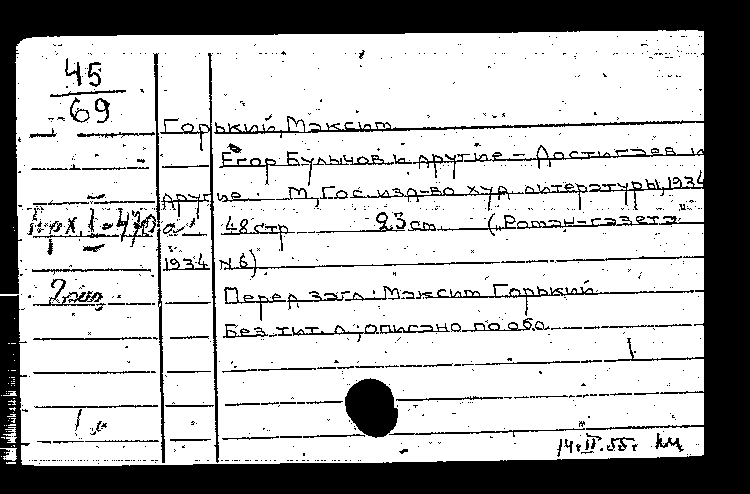 45
69
Горький, Максим
Егор Булычов и другие – Достигаев и
другие. М, Гос. изд-во худ. литературы, 1934
48 стр 23 см. („Роман-газета"
1934 №6)
Перед загл: Максим Горький
Без тит. л; описано по обл.
Арх. I-470а
2 экз.
14.II.55г.